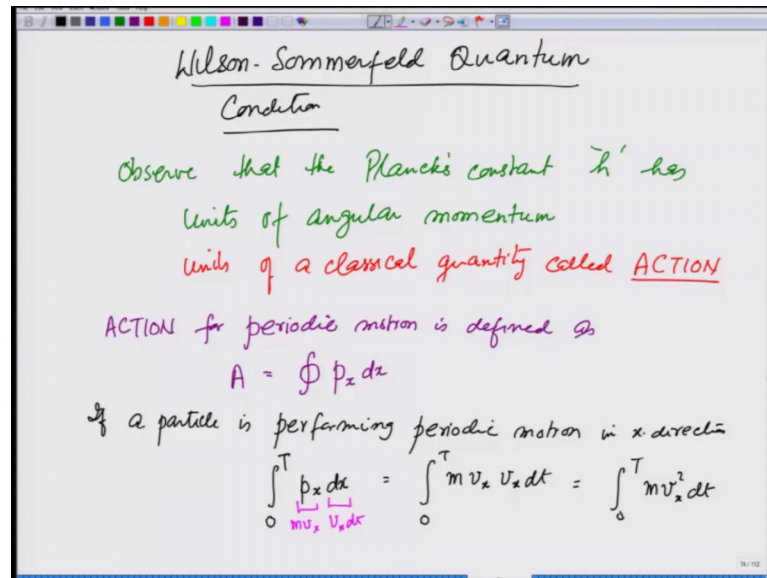 Wilson-Sommerfeld Quantum
Condition
Observe that the Planck's constant 'h' has
units of angular momentum
units of a classical quantity called ACTION
ACTION for periodic motion is defined as
A = ∮ pₓ dx
If a particle is performing periodic motion in x-direction
∫₀ᵀ pₓ dx = ∫₀ᵀ m vₓ vₓ dt = ∫₀ᵀ m vₓ² dt
mvₓ vₓdt
74/112